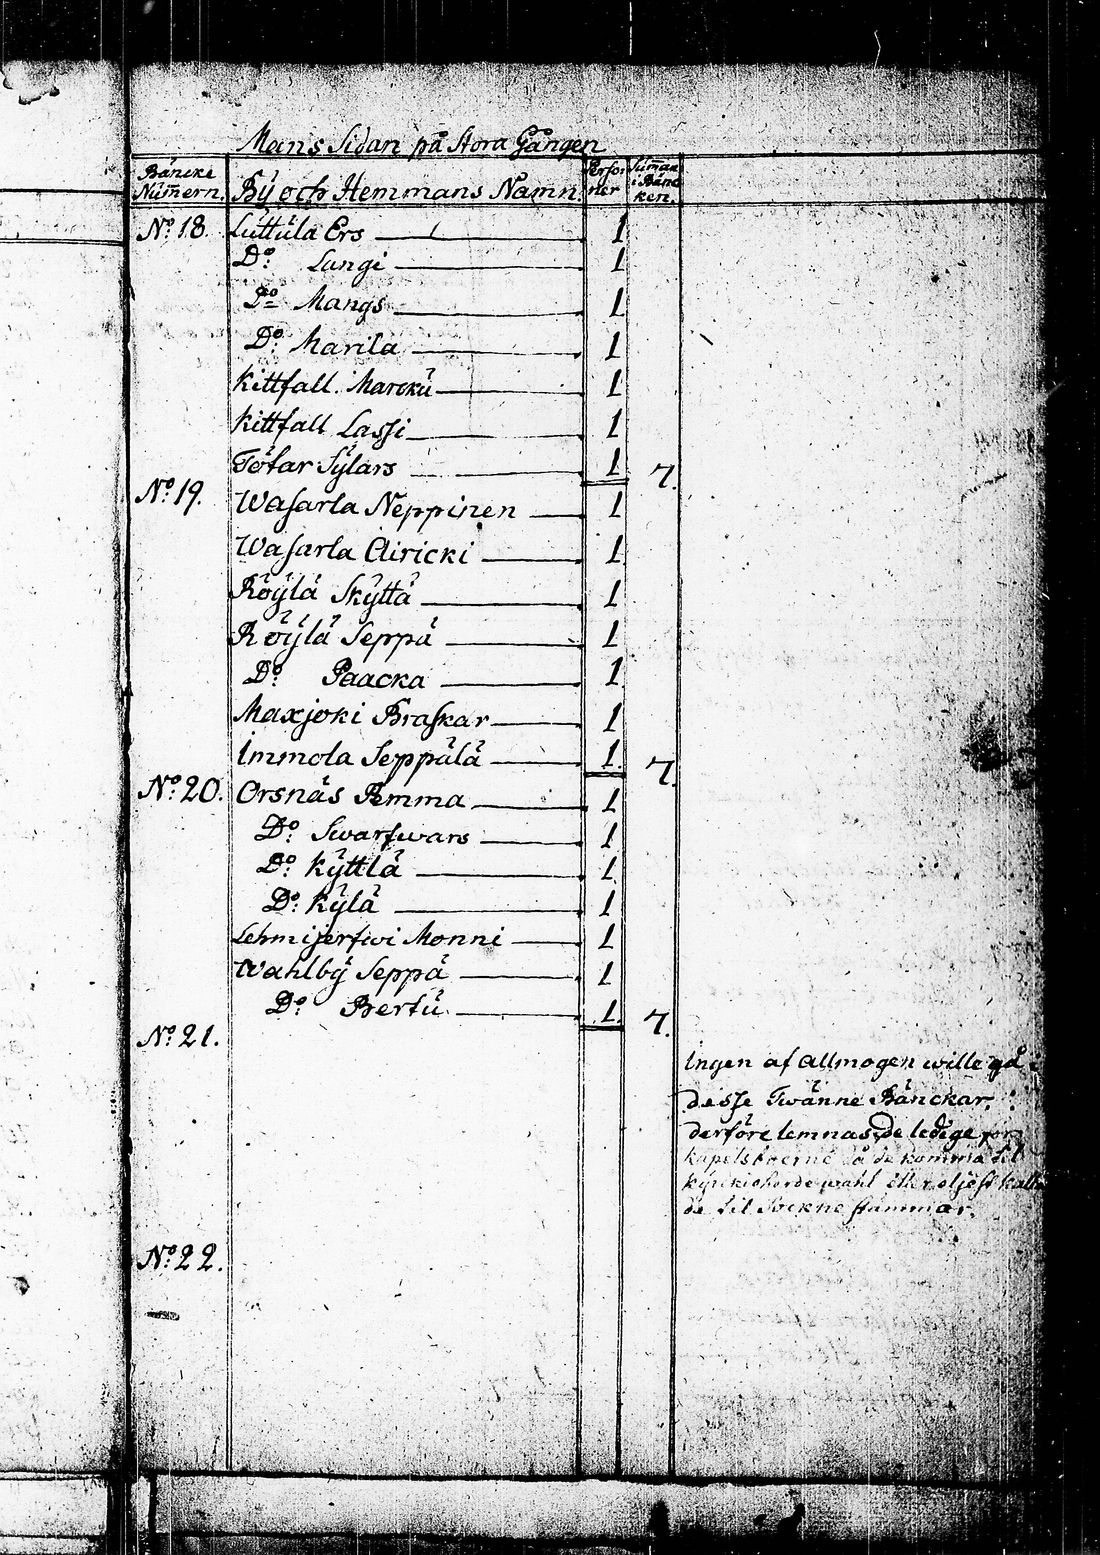 Mans Sidan på Stora Gången
Bäncke Nümern. By och Hemmans Namn. Personer Sum̃an i Bäncken.
No: 18. Luttüla Ers 1
Do: Langi 1
Do Mangs 1
Do: Marila 1
Kittfall. Marckü 1
Kittfall Lassi 1
Töfar Sÿlars 1 7.
No: 19. Wasarla Neppinen 1
Wasarla Airicki 1
Röÿlä Skÿttä 1
Röÿlä Seppä 1
Do: Paacka 1
Maxjoki Braskar 1
Immola Seppälä 1. 7.
No: 20. Orsnäs Pemma 1
Do: Swartwars 1
Do: Kÿttlä 1
Do: Kÿlä 1
Lehmijerfwi Monni 1
Wahlbÿ Seppä 1
Do: Bertü 1. 7.
No: 21.
Ingen af Allmogen wille gå i
desse Twänne Bänckar,
derföre lemnas de ledige för
då de komma til
wahl eller eljest
de til Sockne stämmar.
No: 22.